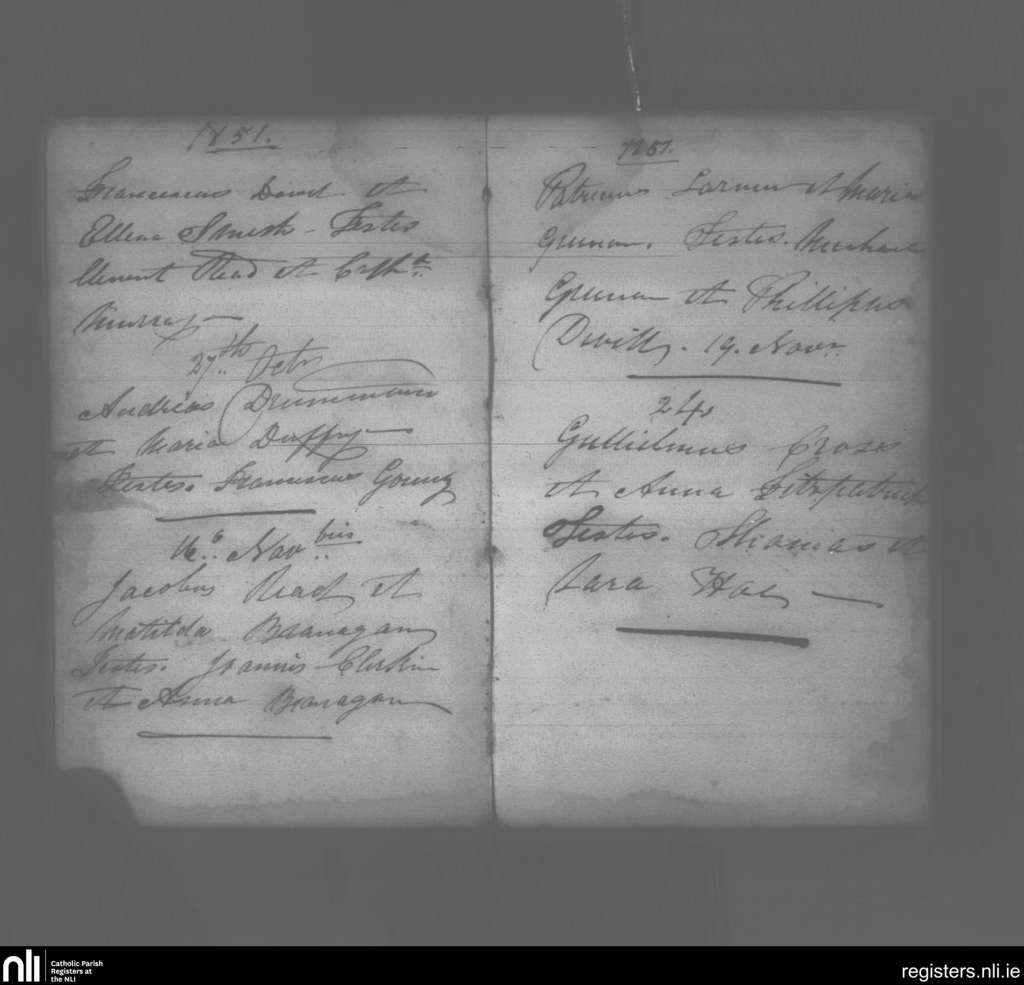 1851.
Franciscus Dowd et
Ellena Smith - Testes
Clement Read et Cath.
Murray -
27th Octr
Andreas Drummond
et Maria Duffy -
Testes. Franciscus Young
16.o Novbris
Jacobus Read et
Matilda Branagan
Testes. Joannis Clerkin
et Anna Branagan
1851.
Patricius et Maria
Testes. Michael
et Phillipus
19. Novr.
24
Gullielmus Cross
et Anna Fitzpatrick
Testes. Thomas et
Sara Hoey -
nli
Catholic Parish
Registers at
the NLI
registers.nli.ie